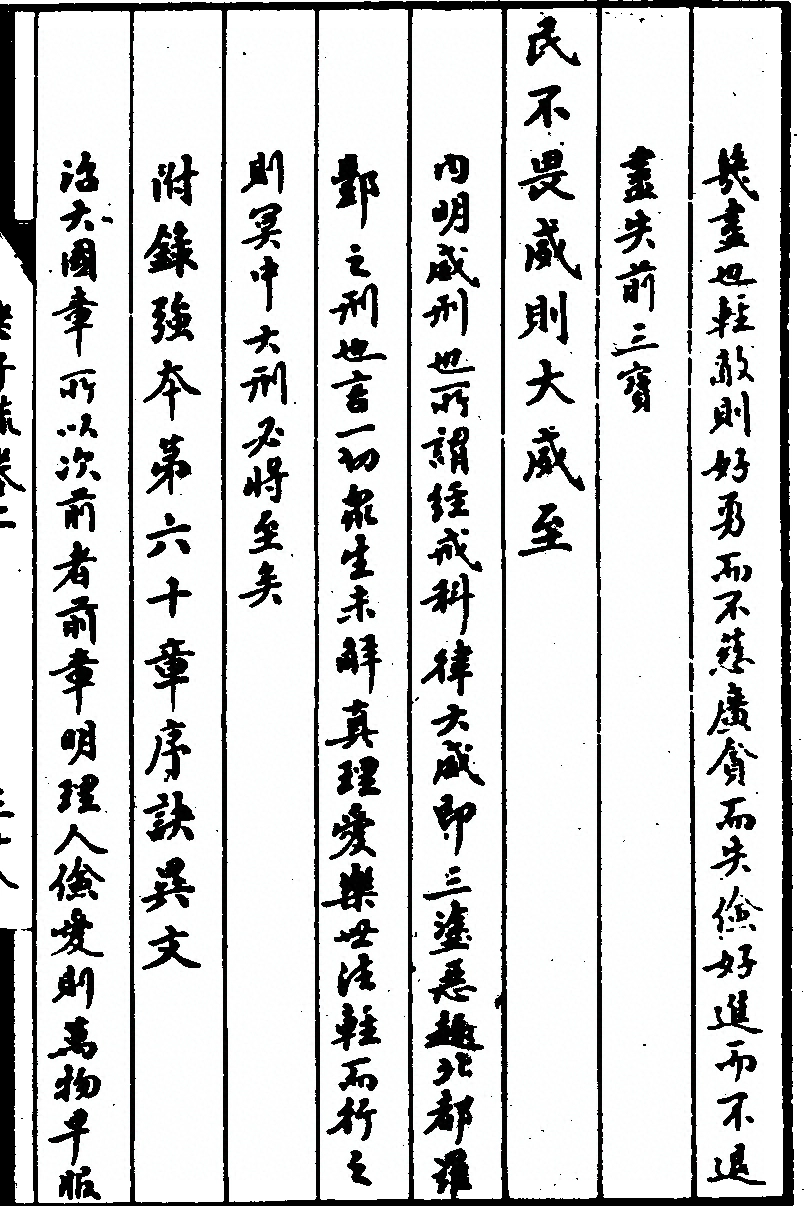 幾盡也輕敵則好勇而不慈廣貪而失儉好進而不退
盡失前三寶
民不畏威則大威至
內明威刑也所謂經戒科律大威即三塗惡趣北都羅
酆之刑也言一切衆生未解真理愛樂世法輕而行之
則冥中大刑必將至矣
附錄強本第六十章序訣異文
治大國章所以次前者前章明理人儉愛則萬物早服
老子疏卷二
三十八